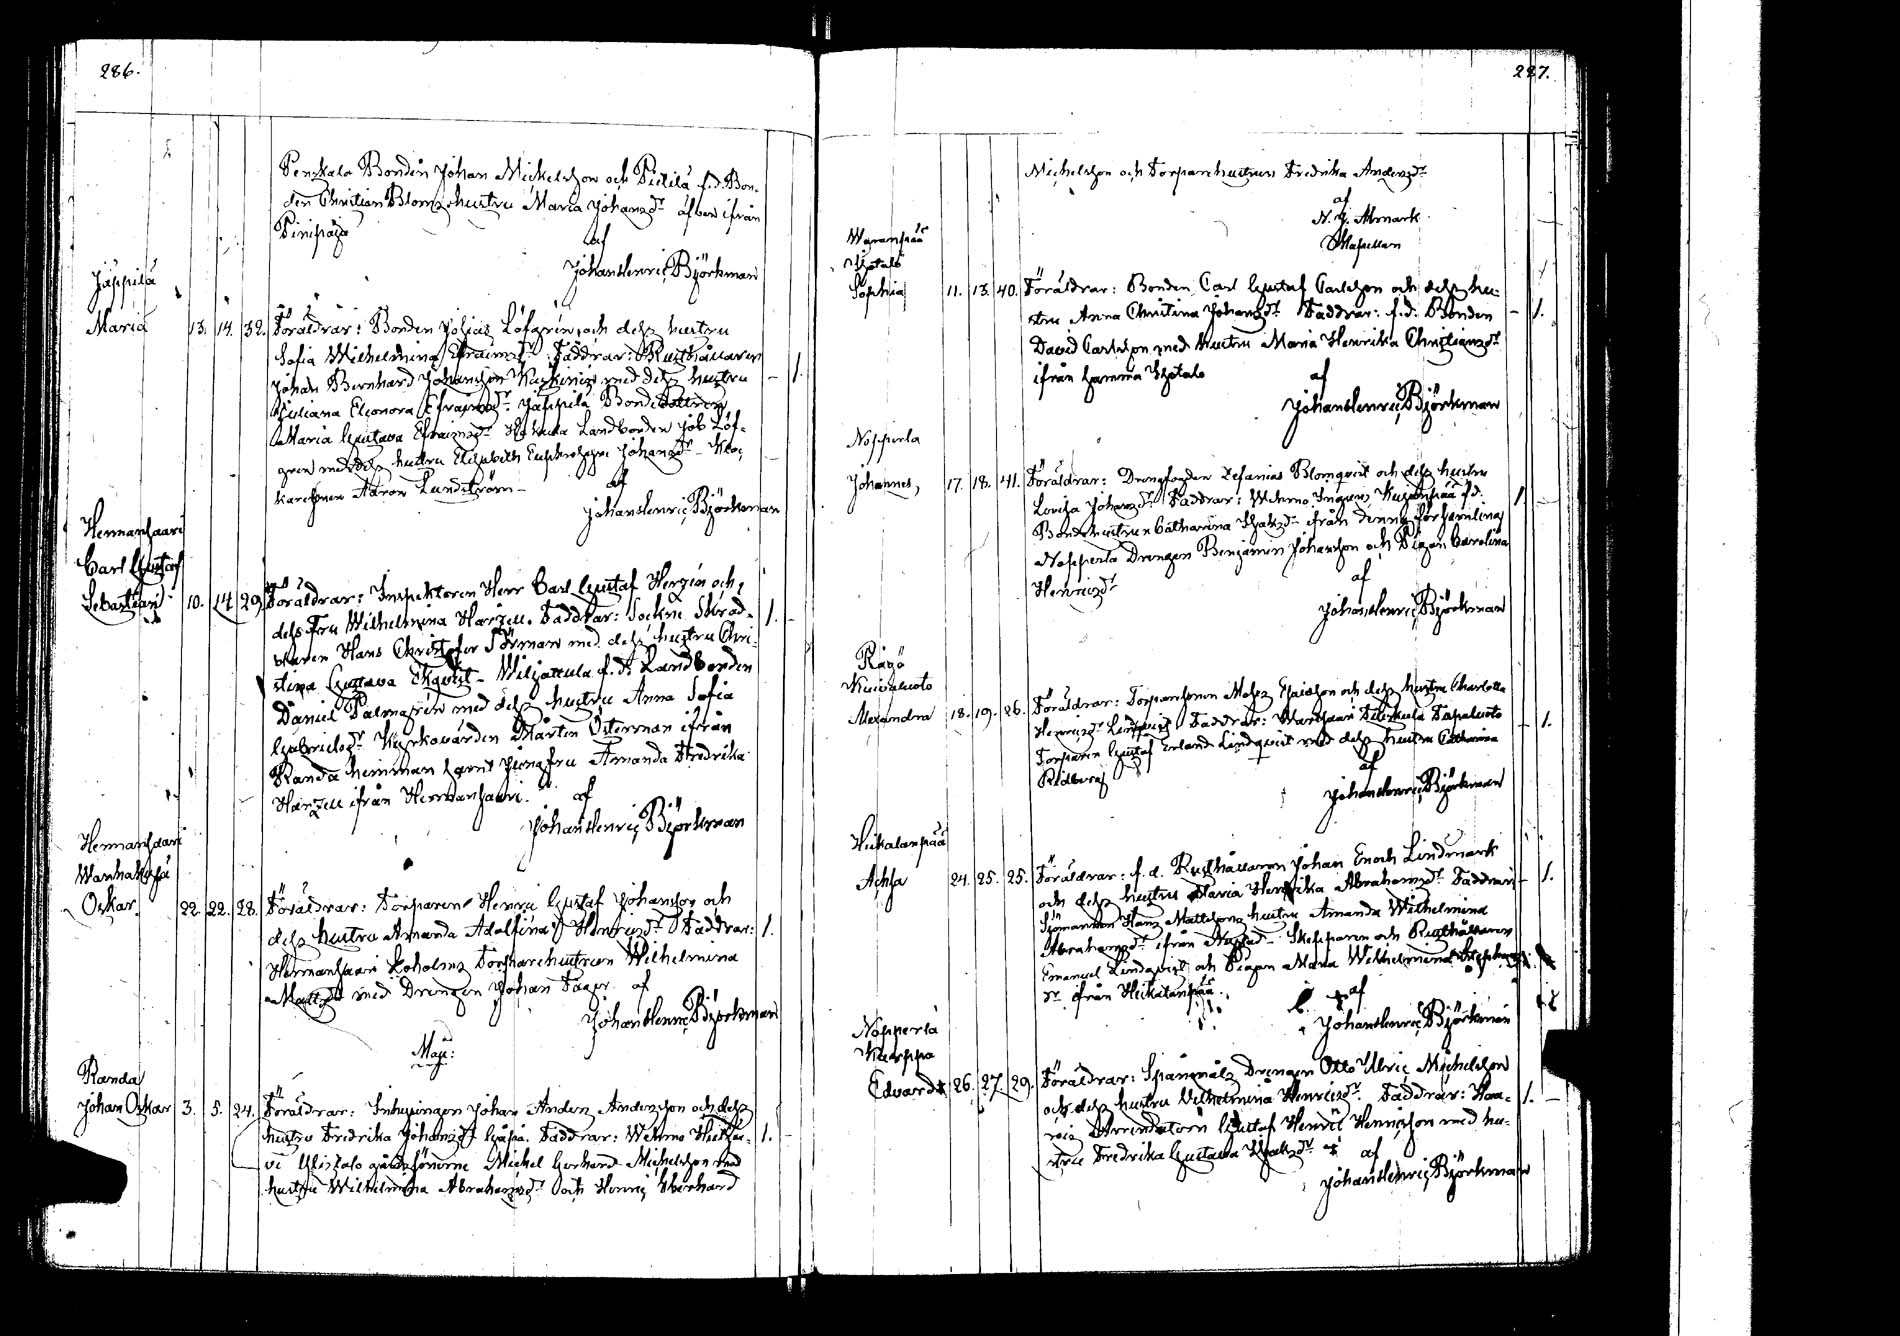 286.
Penkala Bonden Johan Mickelsson och Pietilä f.d. Bon-
den Christian Bloms hustru Maria Johansdr äfven ifrån
Pinipaja
af
Johan Henric Björkman
Jäppilä
Maria 13. 14. 32. Föräldrar: Bonden Josias Löfgren och dess hustru
Sofia Wilhelmina Efraimsdr. Faddrar: Rusthållaren
Johan Bernhard Johansson Kaskinis med dess hustru 1.
Juliana Eleonora Efraimsdr. Jäppilä Bondedottren
Maria Gustava Efraimsdr. Landbonden Job Löf-
gren med dess hustru Elisabeth Euphrosyne Johansdr - Kloc-
karesonen Aaron Lundström -
af
Johan Henric Björkman
Hermansaari
Carl Gustaf
Sebastian 10. 14. 29. Föräldrar: Inspektoren Herr Carl Gustaf Herzén och
dess Fru Wilhelmina Harzell. Faddrar: Sockne Skräd- 1.
daren Hans Christofer Törman med dess hustru Chri-
stina Gustava Ekqvist - Wiljattula f.d. Landbonden
Daniel Palmgren med dess hustru Anna Sofia
Gabrielsdr. Kyrkovärden Mårten Österman ifrån
Randa hemman samt Jungfru Amanda Fredrika
Harzell ifrån Hermansaari.
af
Johan Henric Björkman
Hermansaari
Wanhakylä
Oskar. 22. 22. 28. Föräldrar: Torparen Henric Gustaf Johansson och
dess hustru Amanda Adolfina Henricsdr Faddrar: 1.
Hermansaari Loholms Torparehustrun Wilhelmina
Mattsdr med Drengen Johan Fager. af
Johan Henric Björkman
Maji:
Randa
Johan Oskar 3. 5. 24. Föräldrar: Inhysingen Johan Anders Andersson och dess
hustru Fredrika Johansdr Faddrar: Wehmo 1.
Michel Gerhard Michelsson med
hustru Wilhelmina Abrahamsdr och Henric Eberhard
287.
Michelsson och Torparehustrun Fredrika Andersdr
af
N. J. Almark
Kapellan
Waranpää
Sophia 11. 13. 40. Föräldrar: Bonden Carl Gustaf Carlsson och dess hu-
stru Anna Christina Johansdr Faddrar: f.d. Bonden 1.
David Carlsson med hustru Maria Henrika Christiansdr
ifrån Gamma
af
Johan Henric Björkman
Nopperla
Johannes, 17. 18. 41. Föräldrar: Drengfogden Zefanias Blomqvist och dess hustru
Lovisa Johansdr Faddrar: Wehmo f.d. 1.
Bondehustrun Catharina Isaksdr ifrån denna församling
Nopperla Drengen Benjamin Johansson och Pigan Carolina
Henricsdr
af
Johan Henric Björkman
Rågö
Kuivaluoto
Alexandra 18. 19. 26. Föräldrar: Torparesonen Moses Esaiasson och dess hustru Charlotta
Henricsdr Lindqvist Faddrar: Wartsaari Tapaluoto 1.
Torparen Gustaf Erland Lindqvist med dess hustru Catharina
Rådberg
af
Johan Henric Björkman
Hiekalanpää
Achsa 24. 25. 25. Föräldrar: f.d. Rusthållaren Johan Enoch Lindmark 1.
och dess hustru Maria Henrika Abrahamsdr Faddrar:
Sjömannen Hans Mattssons hustru Amanda Wilhelmina
Abrahamsdr ifrån Nystad - Skepparen och Rusthållaren
Emanuel Lindqvist och Pigan Maria Wilhelmina
dr ifrån Hiekalanpää.
af
Johan Henric Björkman
Nopperla
Karppa
Edvard 26. 27. 29. Föräldrar: Spannmåls Drengen Otto Ulric Michelsson
och dess hustru Vilhelmina Henricsdr. Faddrar: 1.
Arrendatorn Gustaf Henric Henricsson med hu-
stru Fredrika Gustava Isaksdr
af
Johan Henric Björkman